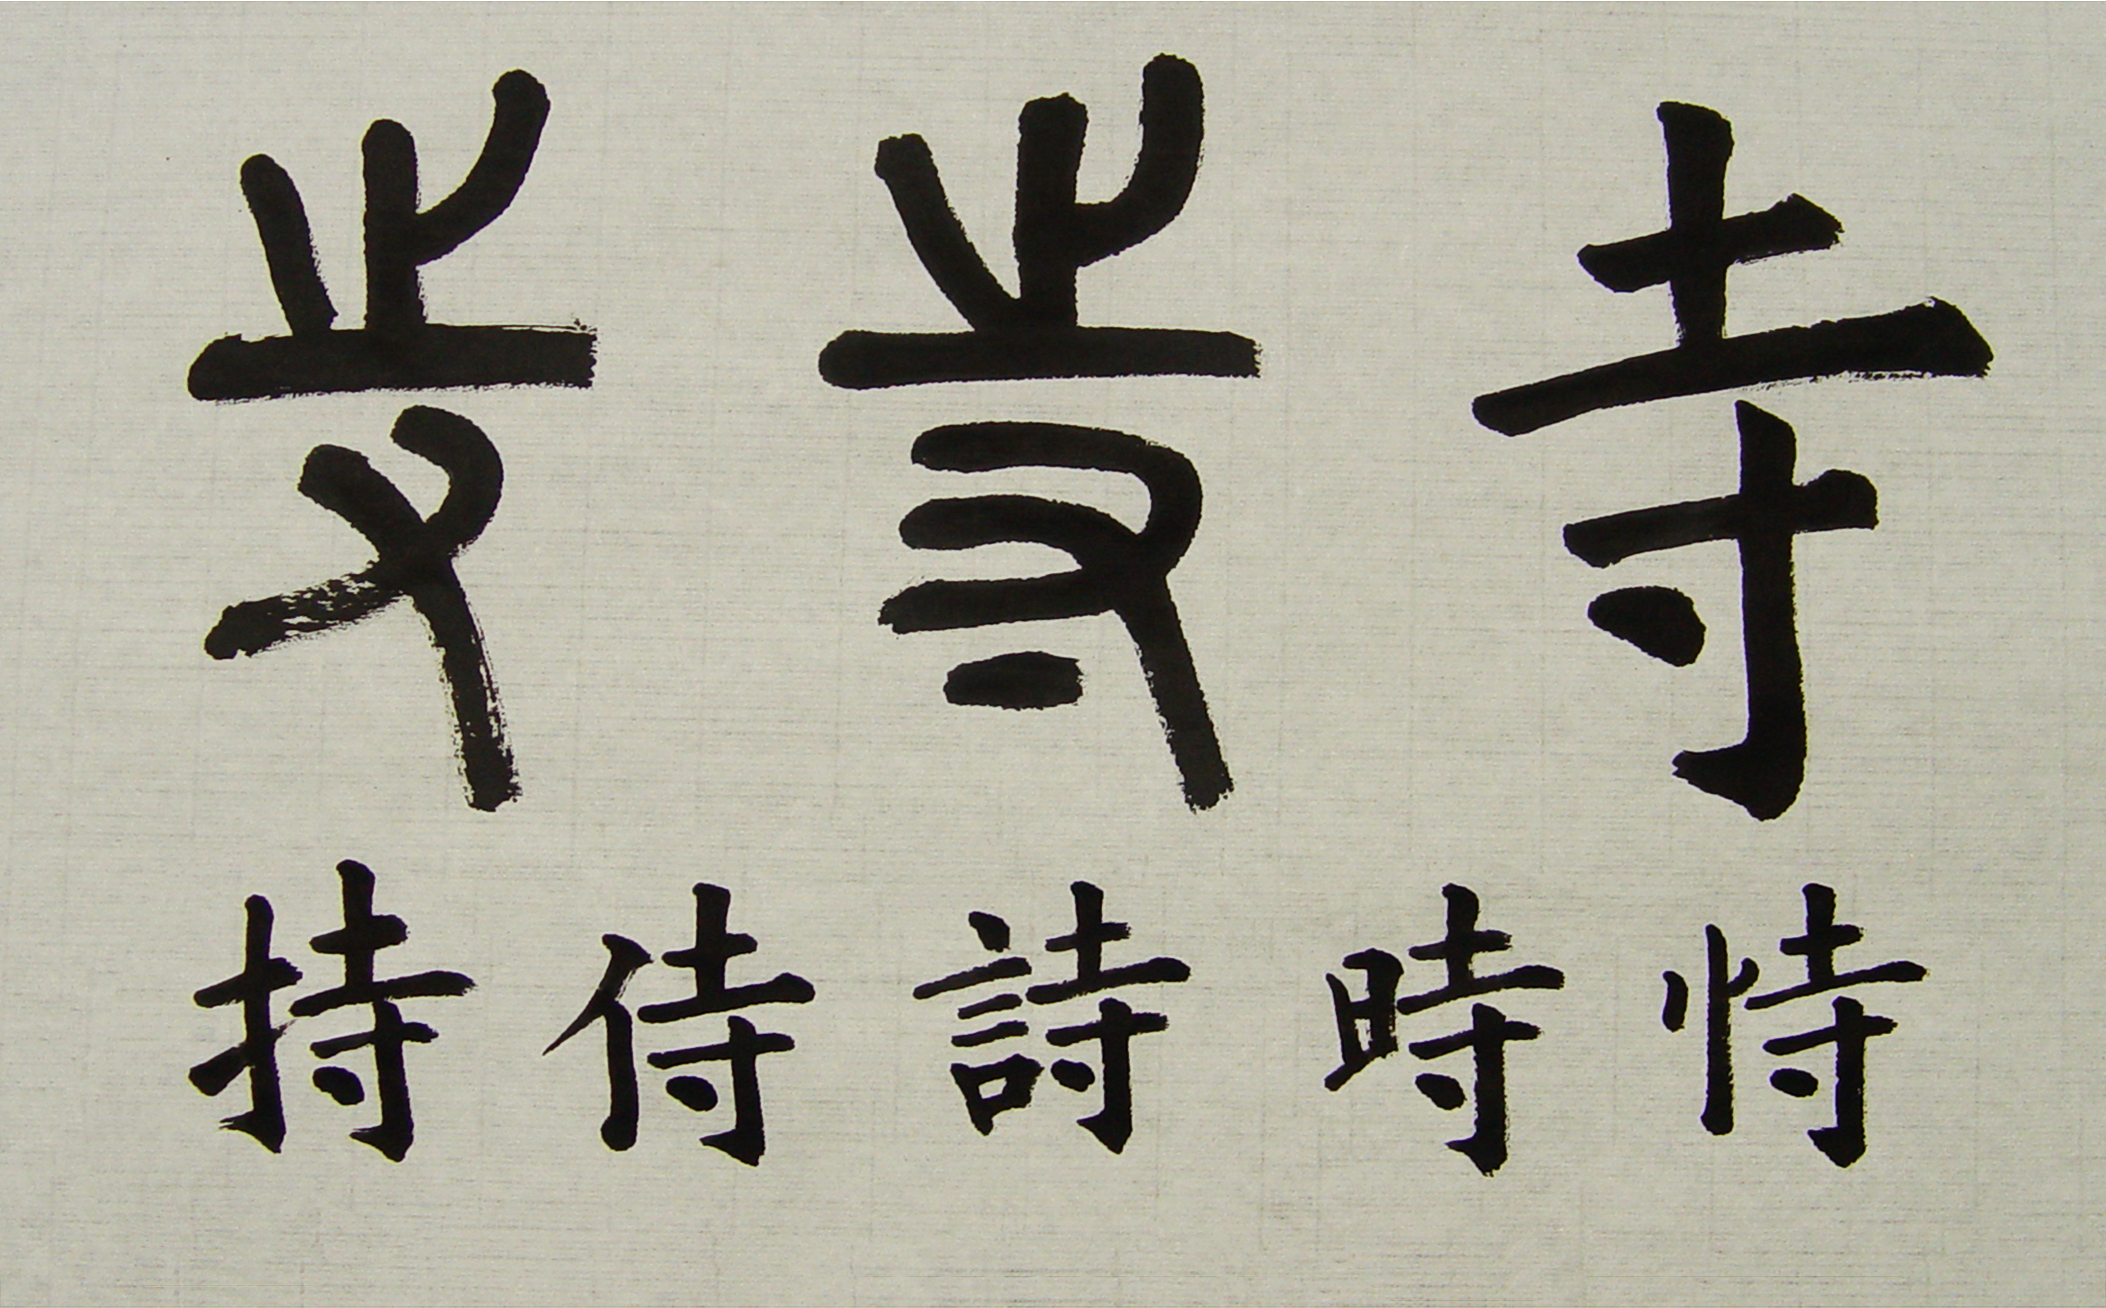 寺 寺 寺
持 侍 詩 時 恃